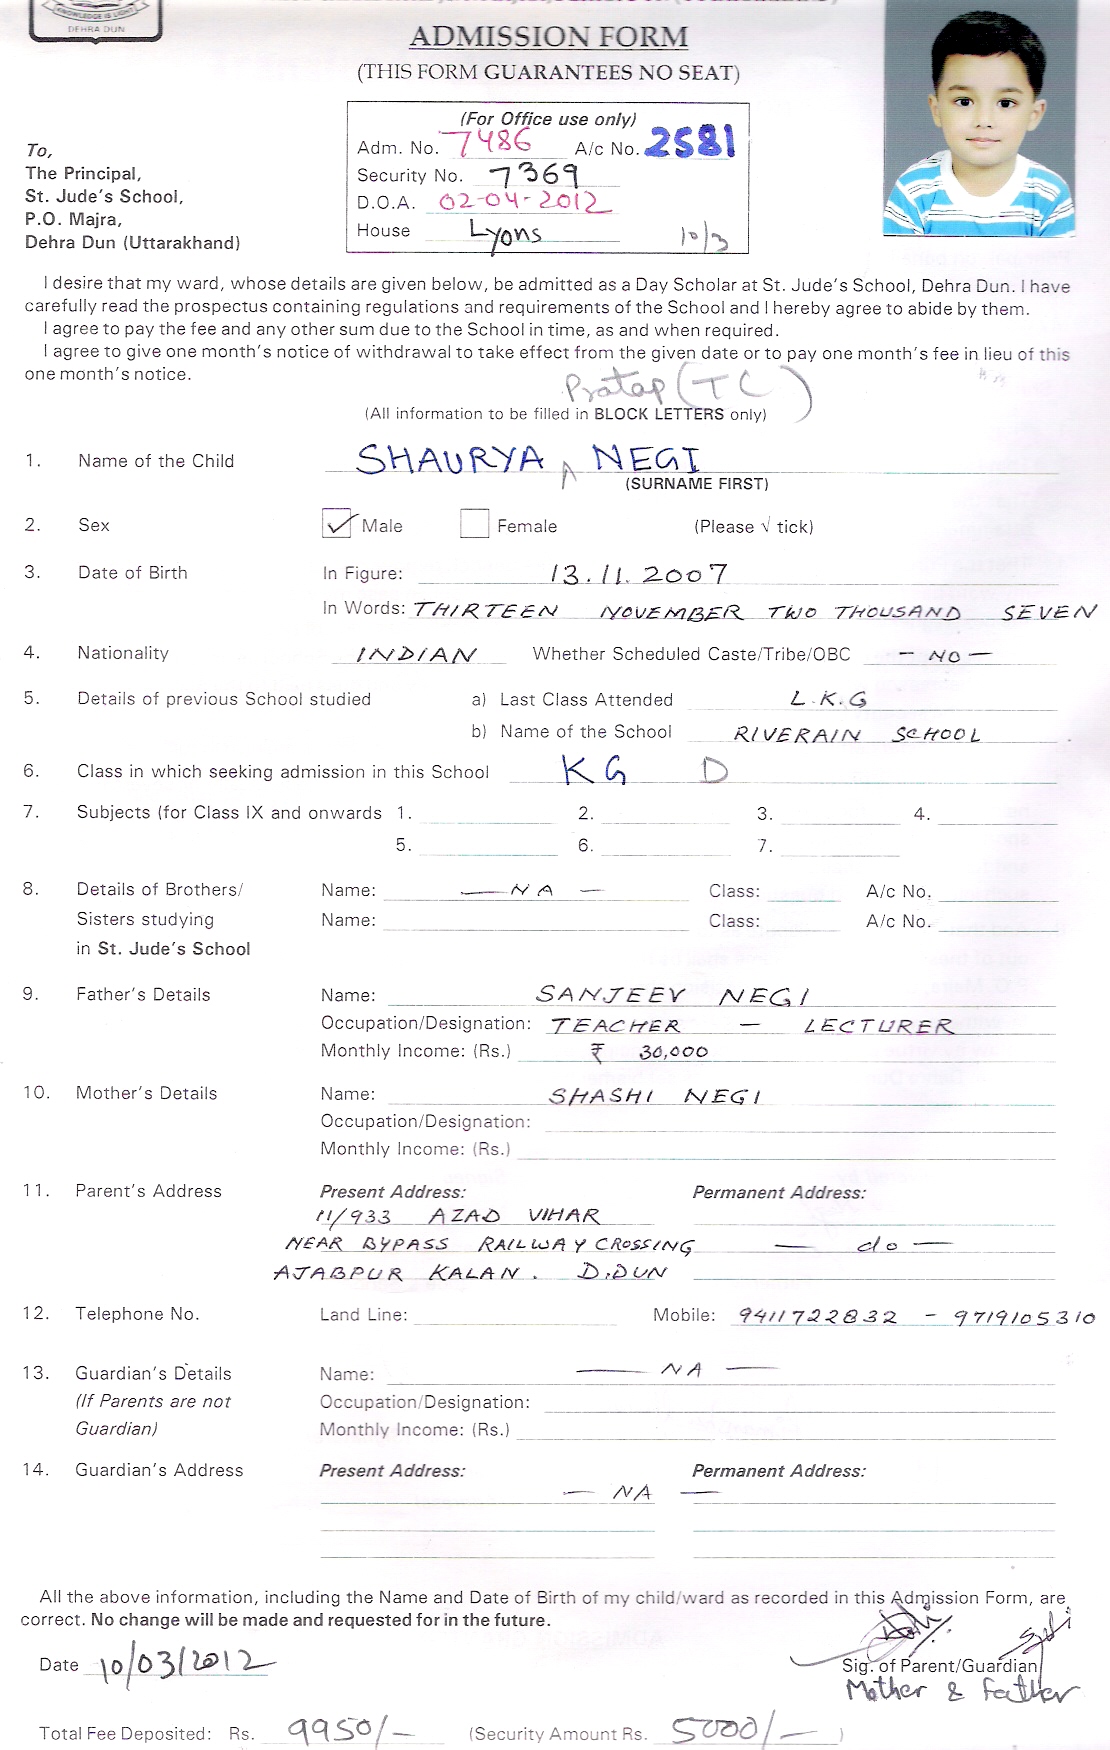 KNOWLEDGE IS LIGHT
DEHRA DUN
ADMISSION FORM
(THIS FORM GUARANTEES NO SEAT)
(For Office use only)
Adm. No. 7486 A/c No. 2581
Security No. 7369
D.O.A. 02-04-2012
House Lyons 10/3
To,
The Principal,
St. Jude's School,
P.O. Majra,
Dehra Dun (Uttarakhand)
I desire that my ward, whose details are given below, be admitted as a Day Scholar at St. Jude's School, Dehra Dun. I have
carefully read the prospectus containing regulations and requirements of the School and I hereby agree to abide by them.
I agree to pay the fee and any other sum due to the School in time, as and when required.
I agree to give one month's notice of withdrawal to take effect from the given date or to pay one month's fee in lieu of this
one month's notice.
Pratap (TC)
(All information to be filled in BLOCK LETTERS only)
1. Name of the Child SHAURYA NEGI
(SURNAME FIRST)
2. Sex Male Female (Please √ tick)
3. Date of Birth In Figure: 13.11.2007
In Words: THIRTEEN NOVEMBER TWO THOUSAND SEVEN
4. Nationality INDIAN Whether Scheduled Caste/Tribe/OBC - NO -
5. Details of previous School studied a) Last Class Attended L.K.G
b) Name of the School RIVERAIN SCHOOL
6. Class in which seeking admission in this School KG D
7. Subjects (for Class IX and onwards 1. 2. 3. 4.
5. 6. 7.
8. Details of Brothers/ Name: — NA — Class: A/c No.
Sisters studying Name: Class: A/c No.
in St. Jude's School
9. Father's Details Name: SANJEEV NEGI
Occupation/Designation: TEACHER — LECTURER
Monthly Income: (Rs.) ₹ 30,000
10. Mother's Details Name: SHASHI NEGI
Occupation/Designation:
Monthly Income: (Rs.)
11. Parent's Address Present Address: Permanent Address:
11/933 AZAD VIHAR
NEAR BYPASS RAILWAY CROSSING — do —
AJABPUR KALAN. D.DUN
12. Telephone No. Land Line: Mobile: 9411722832 - 9719105310
13. Guardian's Details Name: — NA —
(If Parents are not Occupation/Designation:
Guardian) Monthly Income: (Rs.)
14. Guardian's Address Present Address: Permanent Address:
— NA —
All the above information, including the Name and Date of Birth of my child/ward as recorded in this Admission Form, are
correct. No change will be made and requested for in the future.
Date 10/03/2012 Sig. of Parent/Guardian
Mother & Father
Total Fee Deposited: Rs. 9950/- (Security Amount Rs. 5000/- )